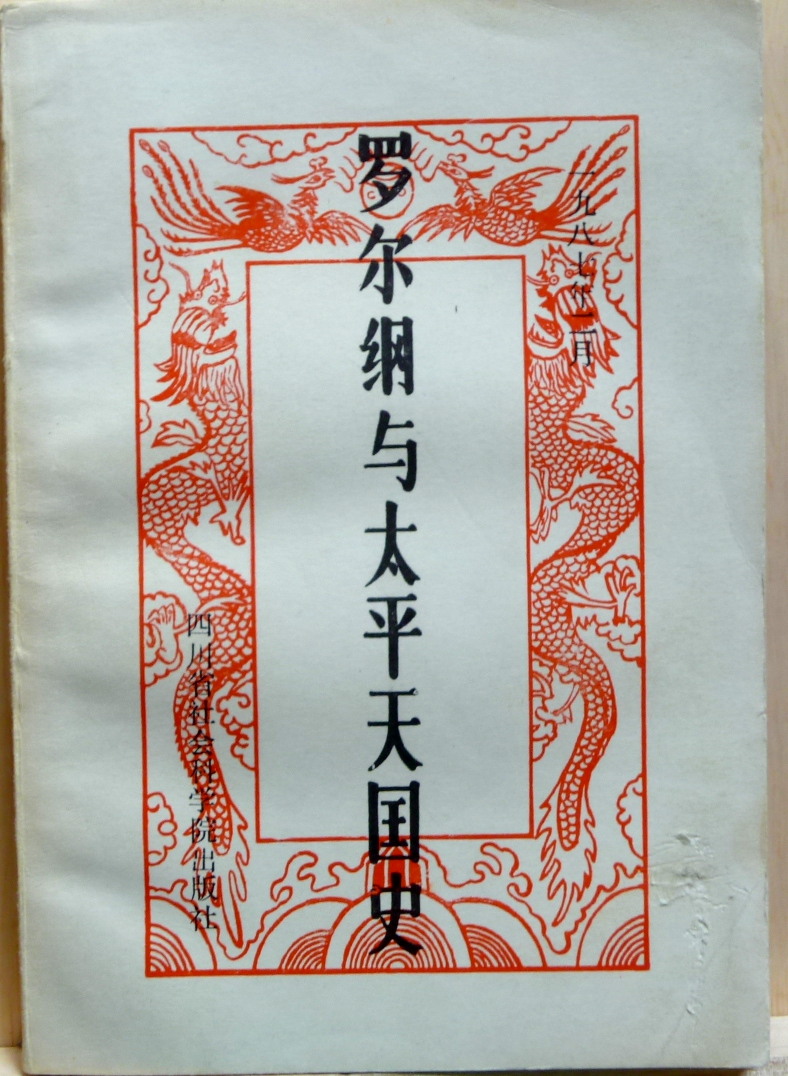 一九八七年二月
罗尔纲与太平天国史
四川省社会科学院出版社